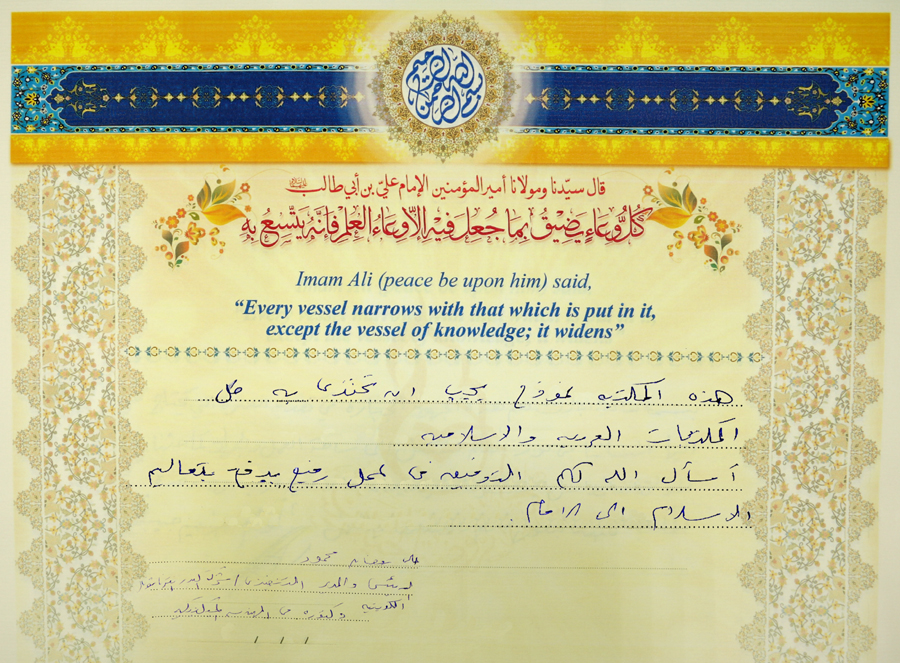 بسم الله الرحمن الرحيم
قال سيّدنا ومولانا أمير المؤمنين الإمام عليّ بن أبي طالب
كُلُّ وِعَاءٍ يَضِيْقُ بِمَا جُعِلَ فِيْهِ إِلاّ وِعَاءُ العِلْمِ فَإِنَّهُ يَتَّسِعُ بِهِ
Imam Ali (peace be upon him) said,
“Every vessel narrows with that which is put in it,
except the vessel of knowledge; it widens”
هذه المكتبه نموذج يجب ان تحتذى به كل
المكتبات العربيه والاسلاميه
أسأل الله لكم التوفيق في عمل رفيع يدفع بتعاليم
الاسلام الى الامام.
محمود
الكويتية دكتوره في
/ / /